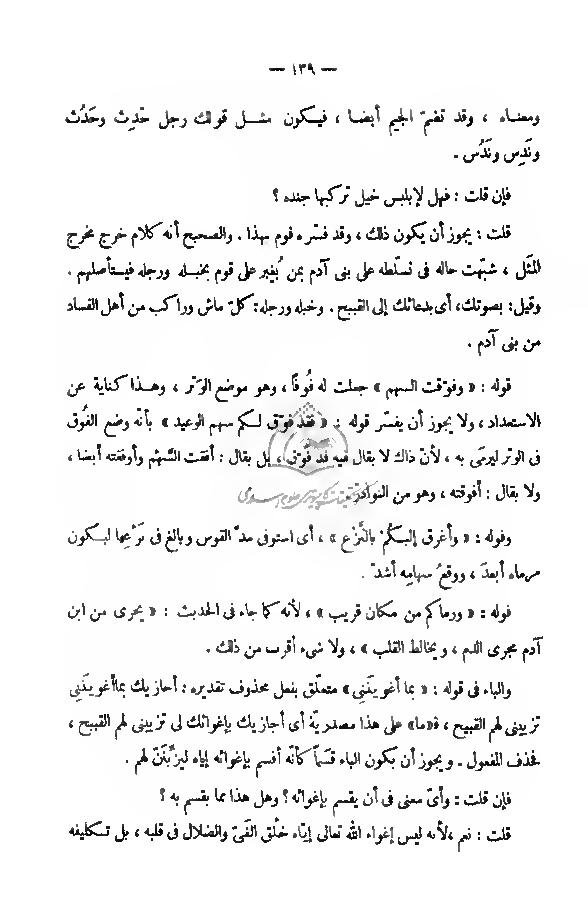 — ١٣٩ —
ومعناه ، وقد تضمّ الجيم أيضا ، فيكون مثل قولك رجل حَدِث وحَدُث
ونَدِس ونَدُس .
فإن قلت : فهل لإبليس خيل تركبها جنده ؟
قلت : يجوز أن يكون ذلك ، وقد فسّره قوم بهذا . والصحيح أنه كلام خرج مخرج
المَثَل ، شبّهت حاله فى تسلّطه على بنى آدم بمن يُغِير على قوم بخيله ورجله فيستأصلهم .
وقيل: بصوتك، أى بدعائك إلى القبيح . وخيله ورجله: كلّ ماش وراكب من أهل الفساد
من بنى آدم .
قوله : « وفوّقت السهم » جعلت له فُوقًا ، وهو موضع الوَتَر ، وهذا كناية عن
الاستعداد ، ولا يجوز أن يفسّر قوله : « فقد فوّق لكم سهم الوعيد » بأنه وضع الفُوق
فى الوتر ليرمى به ، لأنّ ذاك لا يقال فيه قد فَوّق ، بل يقال : أفقت السَّهْم وأوفقته أيضا ،
ولا يقال : أفوقته ، وهو من النوادر .
وقوله : « وأغرق إليكُمْ بالنَّزْع » ، أى استوفى مدّ القوس وبالغ فى نَزْعِها ليكون
مرماه أبعدَ ، ووقعُ سهامِه أشدّ .
قوله : « ورماكم من مكان قريب » ، لأنه كما جاء فى الحديث : « يجرى من ابن
آدم مجرى الدم ، ويخالط القلب » ، ولا شىء أقرب من ذلك .
والباء فى قوله : « بما أغويتَنِى » متعلّق بفعل محذوف تقديره : أجازيك بما أغويتَنِى
تزيينى لهم القبيح ، فـ«ما» على هذا مصدريّة أى أجازيك بإغوائك لى تزيينى لهم القبيح ،
فحذف المفعول . ويجوز أن يكون الباء قَسَماً كأنه أقسم بإغوائه إياه ليزيّنَنّ لهم .
فإن قلت : وأىّ معنى فى أن يقسم بإغوائه ؟ وهل هذا مما يقسم به ؟
قلت : نعم ،لأنه ليس إغواء الله تعالى إيّاه خَلْق الغَىّ والضلال فى قلبه ، بل تكليفه